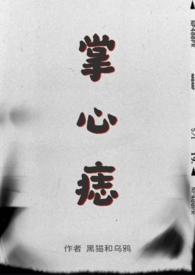 掌心痣
作者 黑猫和乌鸦